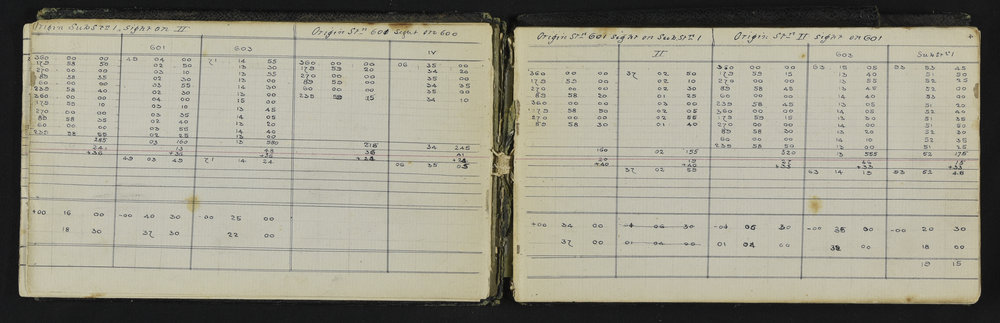 Origin Substn 1, Sight on II
Origin Stn 601 Sight on 600
601 603 IV
360 00 00 49 04 00 71 14 55 360 00 00 06 35 00
179 58 50 02 50 13 30 179 59 20 34 20
270 00 00 03 10 13 55 270 00 00 35 00
89 58 35 02 30 13 00 89 34 35
60 00 00 03 55 14 30 60 00 00 35 00
239 58 40 02 30 13 00 239 59 15 34 10
360 00 00 04 00 15 30
179 59 10 03 10 13 45
270 00 00 03 35 14 05
89 58 35 02 40 13 20
60 00 00 03 55 14 40
239 58 55 02 25 13 00
285 03 160 13 580 215 34 245
24 13 48 36 41
+36 +36 +36 +24 +24
49 03 49 71 14 24 06 35 05
+00 16 00 -00 40 30 -00 25 00
18 30 37 30 22 00
Origin Stn 601 Sight on Substn 1
Origin Stn II Sight on 601
II 603 Substn 1
360 00 00 37 02 50 360 00 00 63 15 05 83 53 45
179 59 10 02 179 59 15 13 40 51 50
270 00 00 02 10 270 00 00 13 55 52 25
89 58 20 02 30 89 58 45 13 45 52 00
60 00 00 01 25 60 00 00 14 40 53 00
360 00 00 03 00 239 58 45 13 05 51 20
179 58 50 02 05 360 00 00 14 05 52 40
270 00 00 02 55 179 59 15 13 30 51 50
89 58 30 01 40 270 00 00 14 00 51 50
89 58 30 13 20 52 30
60 00 00 14 10 52 35
239 58 50 13 00 51 25
160 02 155 320 13 555 52 175
20 19 27 46 15
+40 +40 +33 +33 +33
37 02 59 63 14 19 83 52 48
+00 34 00 30 30 -00 38 00 -00 20 30
37 00 01 04 00 01 04 00 00 18 00
19 15